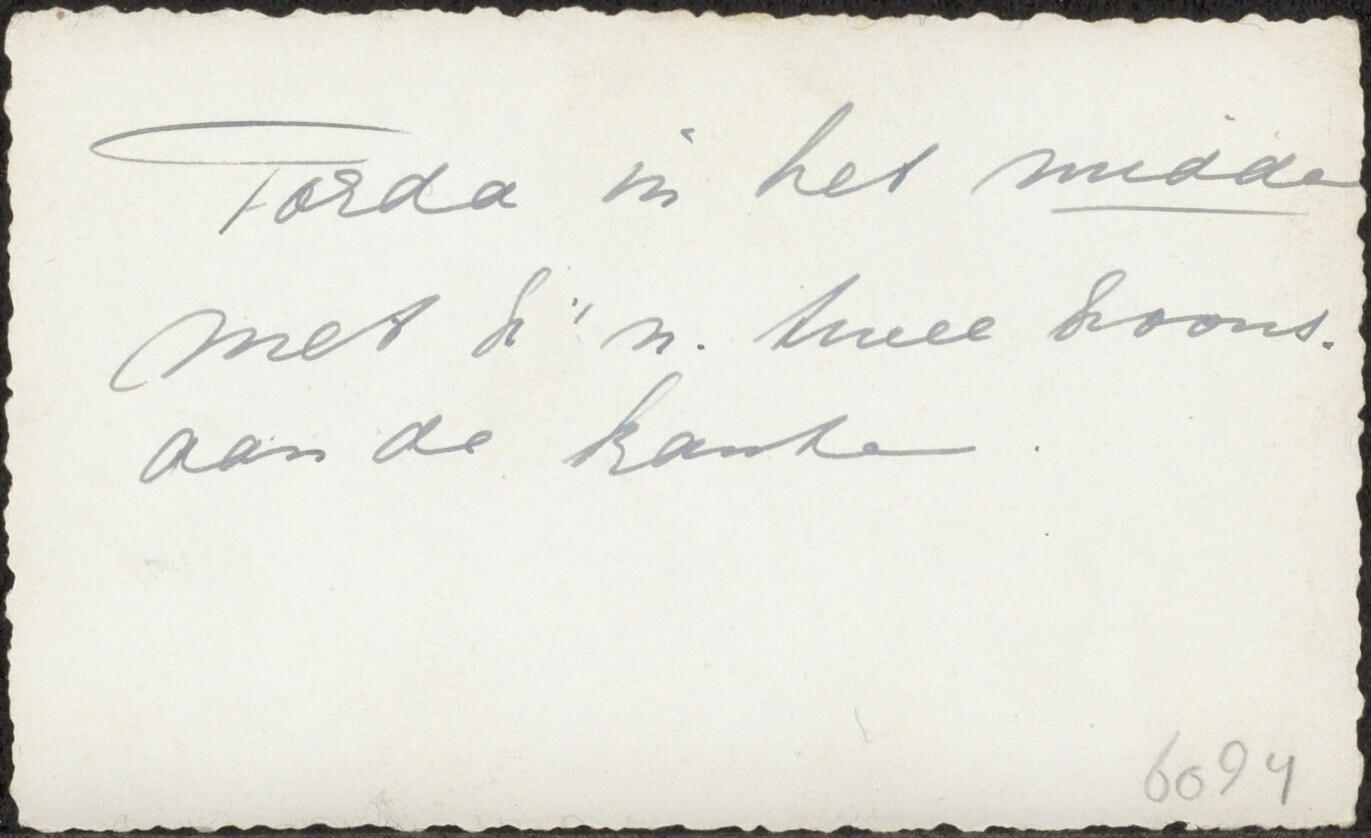 Torda in het midde
met z'n. twee zoons.
aan de kante.
6094